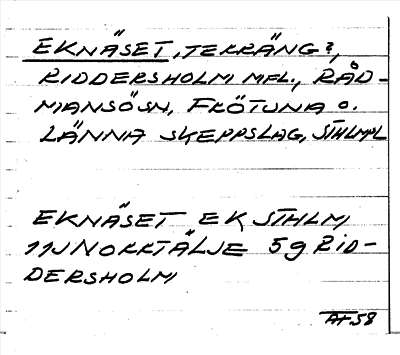 EKNÄSET, TERRÄNG?,
RIDDERSHOLM MFL., RÅD-
MANSÖSN, FRÖTUNA O.
LÄNNA SKEPPSLAG, STHLMSL
EKNÄSET EK STHLM
11J NORRTÄLJE 5g RID-
DERSHOLM
AF.58